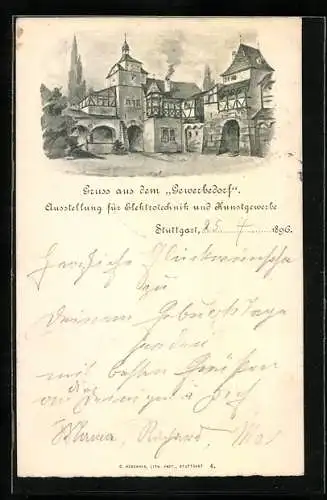 Gruss aus dem „Gewerbedorf".
Ausstellung für Elektrotechnik und Kunstgewerbe
Stuttgart, 25. 7. 1896.
Herzliche Glückwünsche
zu
Deinem Geburtstage
senden
mit besten Grüßen
an Dich
Mama, Richard, Max
LITH. ANST., STUTTGART 4.